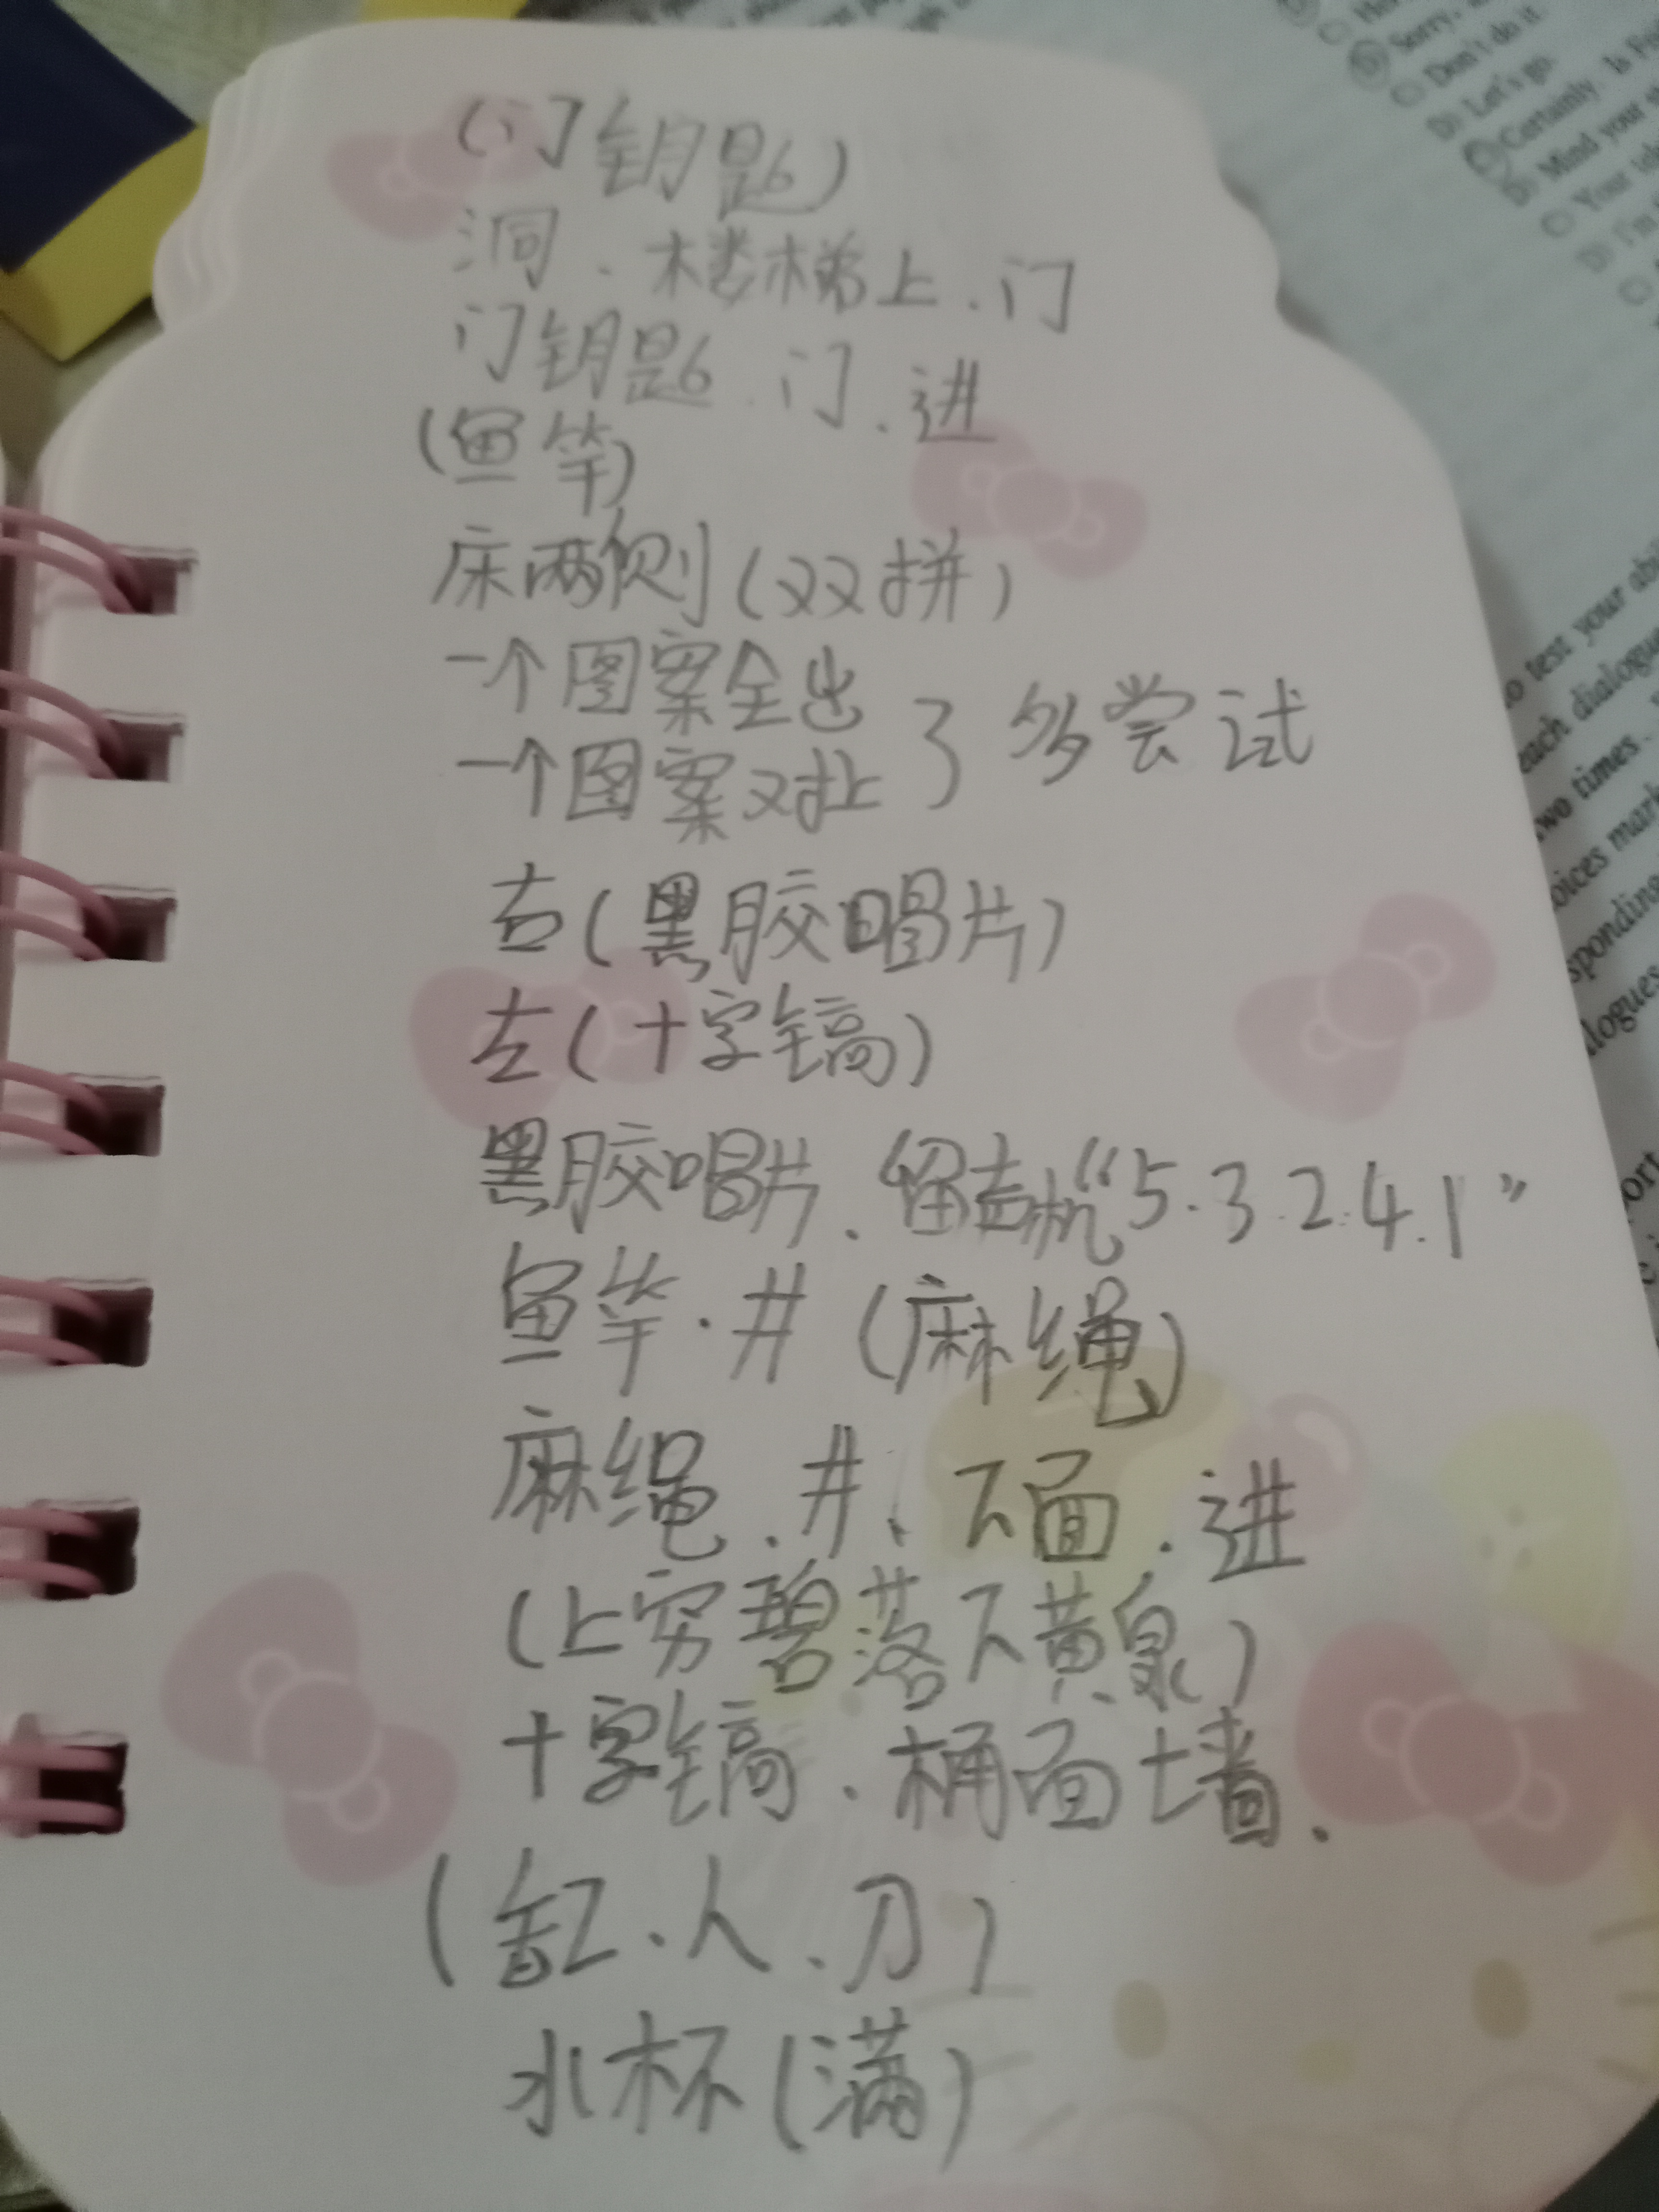 (门钥匙)
洞、楼梯上、门
门钥匙、门、进
(鱼竿)
床两侧(双拼)
一个图案全出
一个图案对扯 } 多尝试
右(黑胶唱片)
左(十字镐)
黑胶唱片、留声机“5.3.2.4.1”
鱼竿.井(麻绳)
麻绳、井、下面、进
(上穷碧落下黄泉)
十字镐、桶面墙.
(缸、人、刀)
水杯(满)
Sorry,
Don't do it
D) Let's go.
Certainly. Is
Mind your
test your
each dialogue
two times.